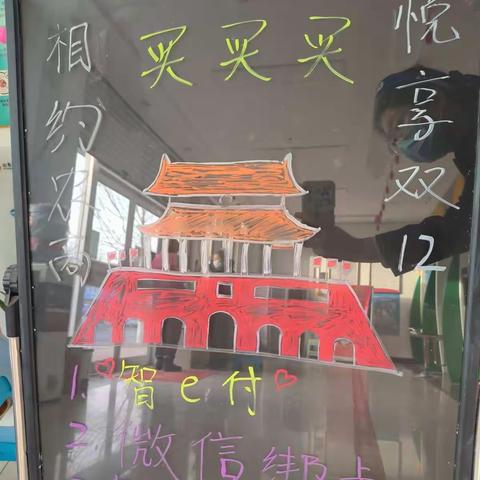 相约农商
买买买
悦享双12
1.智e付
2.微信绑卡